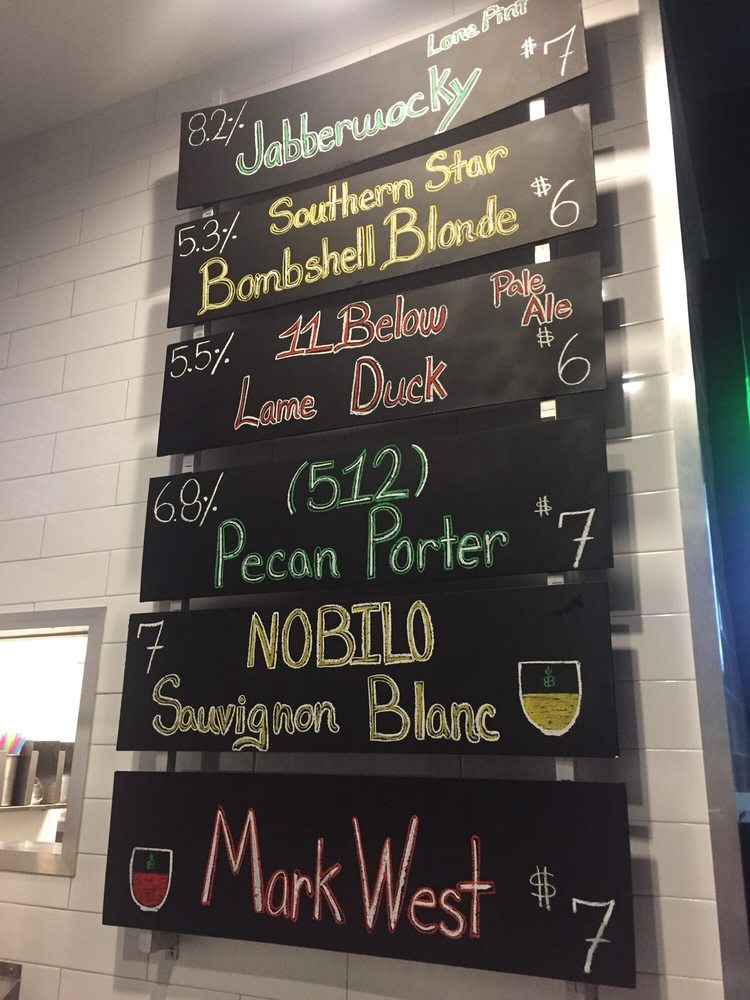 Lone Pint
8.2% Jabberwocky $7
Southern Star
5.3% Bombshell Blonde $6
11 Below Pale Ale
5.5% Lame Duck $6
(512)
6.8% Pecan Porter $7
7 NOBILO
Sauvignon Blanc
Mark West $7